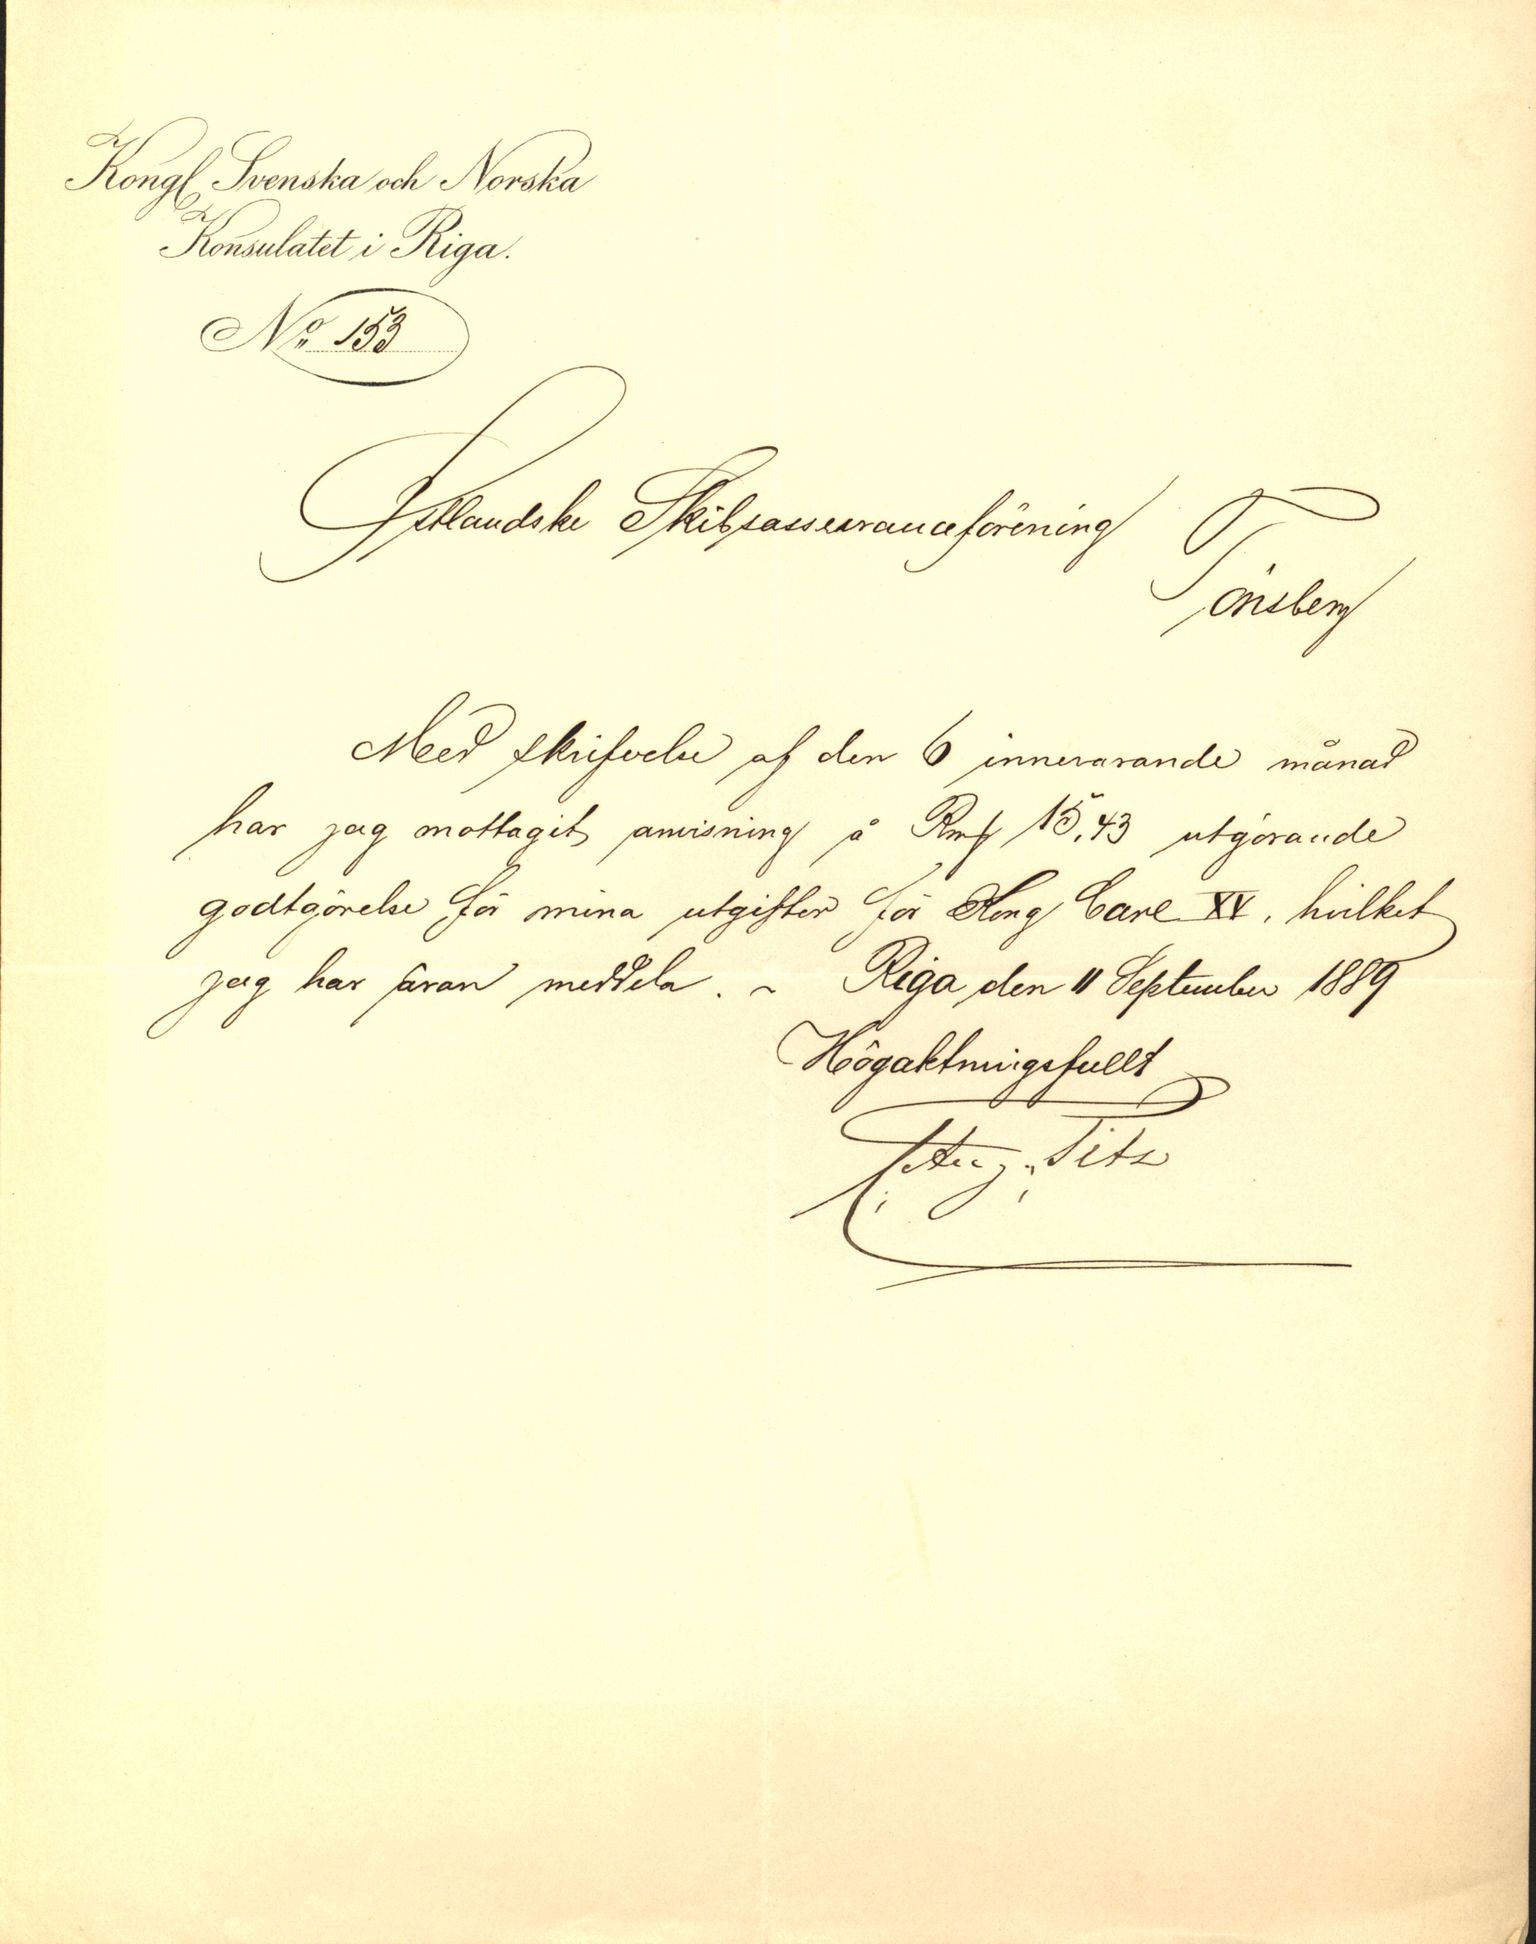 Kongl. Svenska och Norska
Konsulatet i Riga.
No 153
Östlandske Skibsassuranceförening
Tönsberg
Med skrifvelse af den 6 innevarande månad
har jag mottagit anvisning å Rmf 15,43 utgörande
godtgörelse för mina utgifter för Kong Carl XV, hvilket
jag har äran meddela. ~ Riga den 11 September 1889
Högaktningsfullt
Aug. Pitz